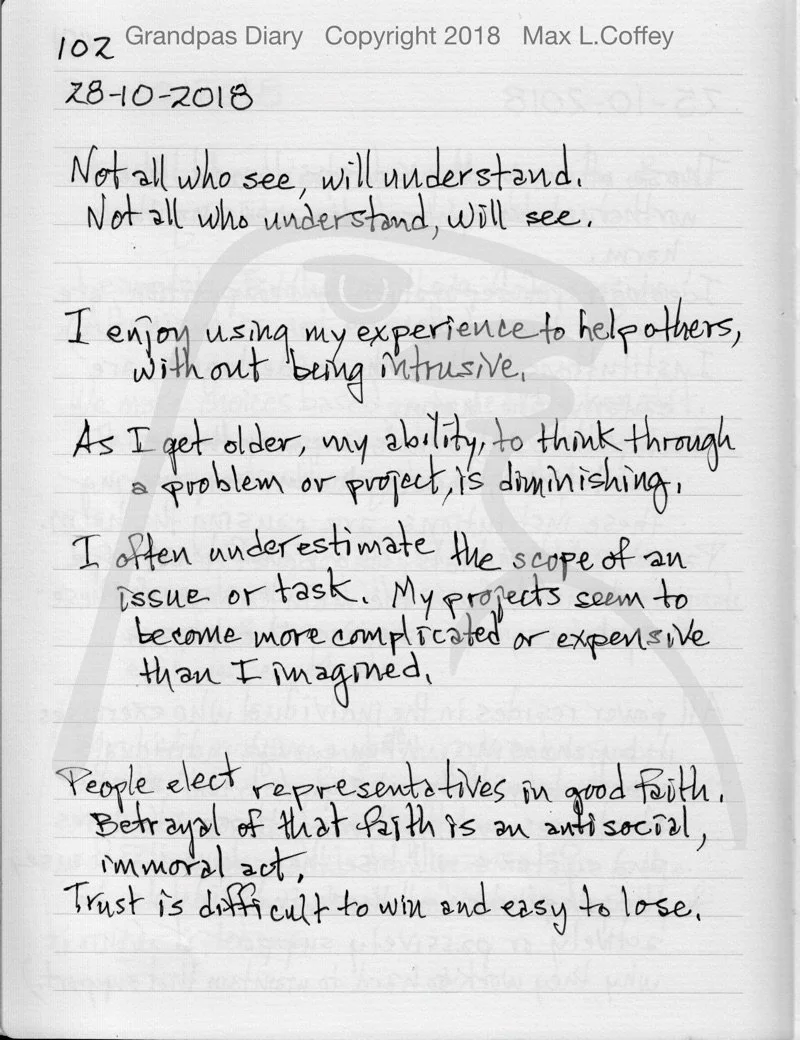 102 Grandpas Diary Copyright 2018 Max L.Coffey
28-10-2018
Not all who see, will understand.
Not all who understand, will see.
I enjoy using my experience to help others,
without being intrusive.
As I get older, my ability, to think through
a problem or project, is diminishing.
I often underestimate the scope of an
issue or task. My projects seem to
become more complicated or expensive
than I imagined.
People elect representatives in good faith.
Betrayal of that faith is an antisocial,
immoral act.
Trust is difficult to win and easy to lose.